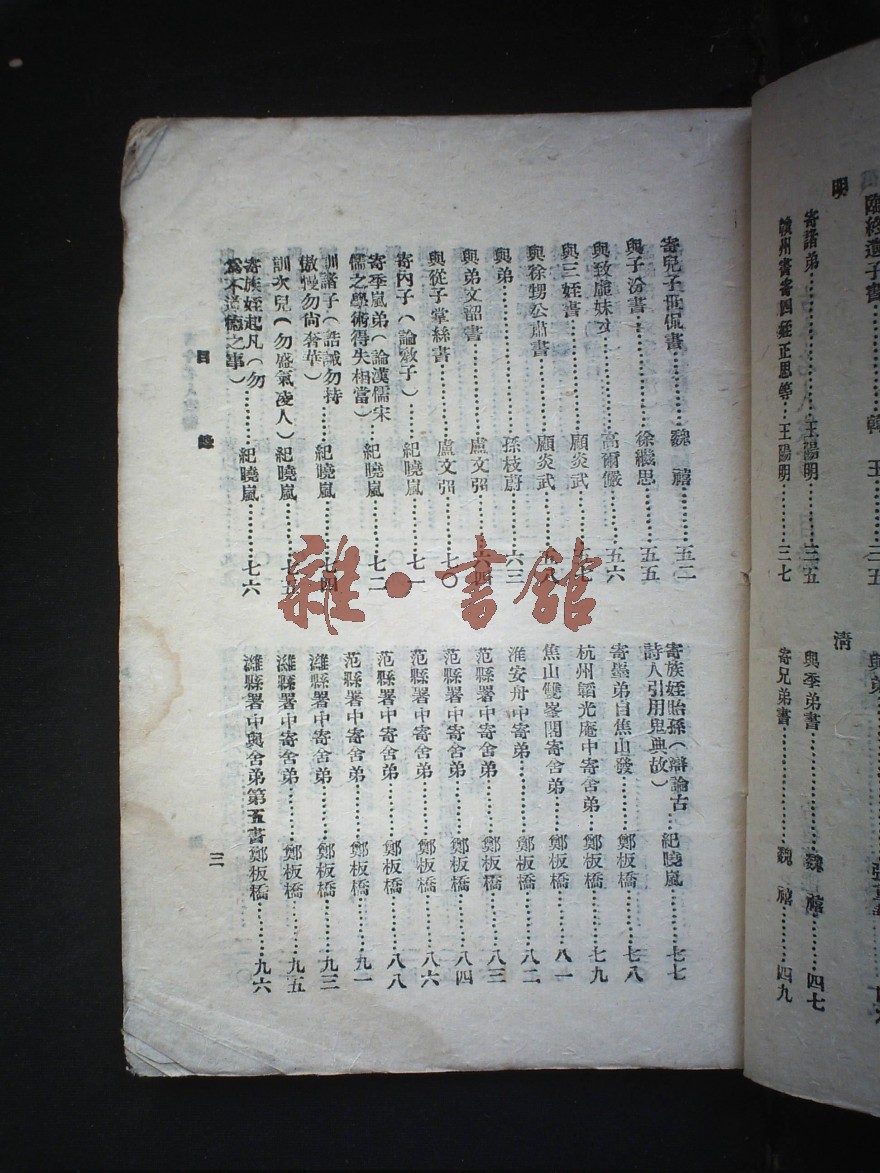 臨終遺子書…………韓　玉……三五
明
寄諸弟…………………王陽明……三五
贛州書寄四姪正思等…王陽明…三七
清
與季弟書…………魏　禧……四七
寄兄弟書…………魏　禧……四九
寄兒子世侃書…………魏　禧……五二
與子汾書………………徐繼思……五五
與致虛妹丈……………高爾儼……五六
與三姪書………………顧炎武……五七
與徐甥公肅書…………顧炎武……五八
與弟……………………孫枝蔚……六三
與弟文韶書……………盧文弨……六四
與從子掌絲書…………盧文弨……七〇
寄內子（論教子）……紀曉嵐……七一
寄季嵐弟（論漢儒宋
儒之學術得失相當）　紀曉嵐……七二
訓諸子（誥誡勿持
傲慢勿尙奢華）………紀曉嵐……七四
訓次兒（勿盛氣凌人）紀曉嵐……七五
寄族姪起凡（勿
爲不道德之事）………紀曉嵐……七六
寄族姪貽孫（辯論古
詩人引用鬼典故）……紀曉嵐……七七
寄墨弟自焦山發………鄭板橋……七八
杭州韜光庵中寄舍弟　鄭板橋……七九
焦山雙峯閣寄舍弟……鄭板橋……八一
淮安舟中寄弟…………鄭板橋……八二
范縣署中寄舍弟………鄭板橋……八三
范縣署中寄舍弟………鄭板橋……八四
范縣署中寄舍弟………鄭板橋……八六
范縣署中寄舍弟………鄭板橋……八八
范縣署中寄舍弟………鄭板橋……九一
濰縣署中寄舍弟………鄭板橋……九三
濰縣署中寄舍弟………鄭板橋……九五
濰縣署中與舍弟第五書鄭板橋……九六
目　錄
三
雜·書館